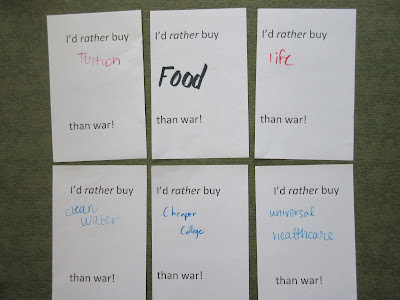 I'd rather buy
Tuition
than war!
I'd rather buy
Food
than war!
I'd rather buy
life
than war!
I'd rather buy
clean
water
than war!
I'd rather buy
Cheaper
College
than war!
I'd rather buy
universal
healthcare
than war!